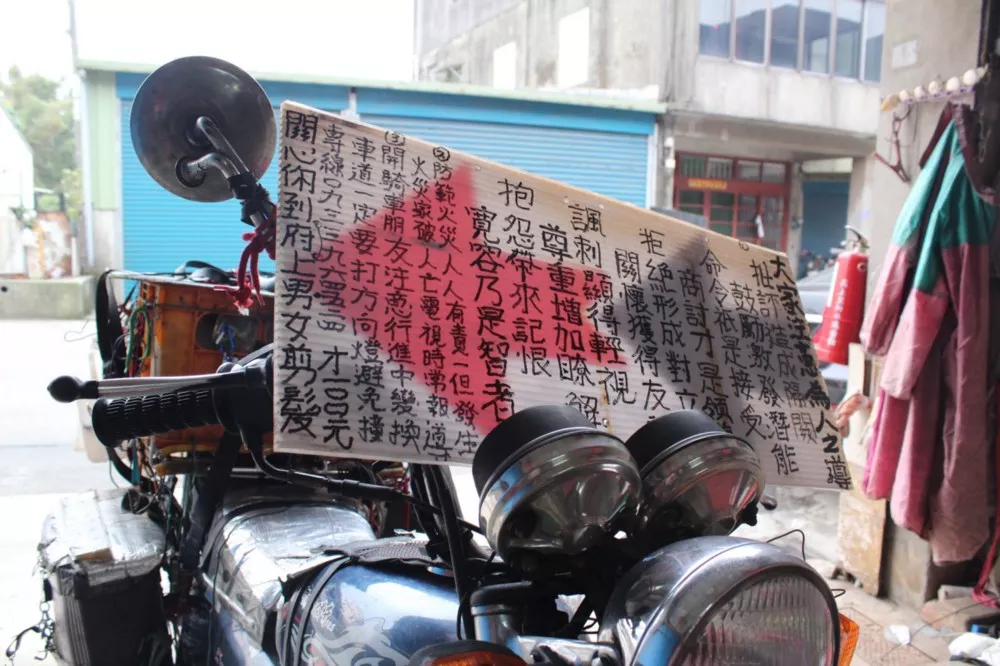 大家注意為人之導
批評造成隔閡
鼓勵激發潛能
命令祇是接受
商討才是領
拒絕形成對立
關懷獲得友
諷刺顯得輕視
尊重增加瞭解
抱怨帶來記恨
寬容乃是智者
②防範火災人人有責一但發生
火災家破人亡電視時常報導
③開騎車朋友注意行進中變換
車道一定要打方向燈避免撞
專線 才一００元
關心你到府上男女剪髮